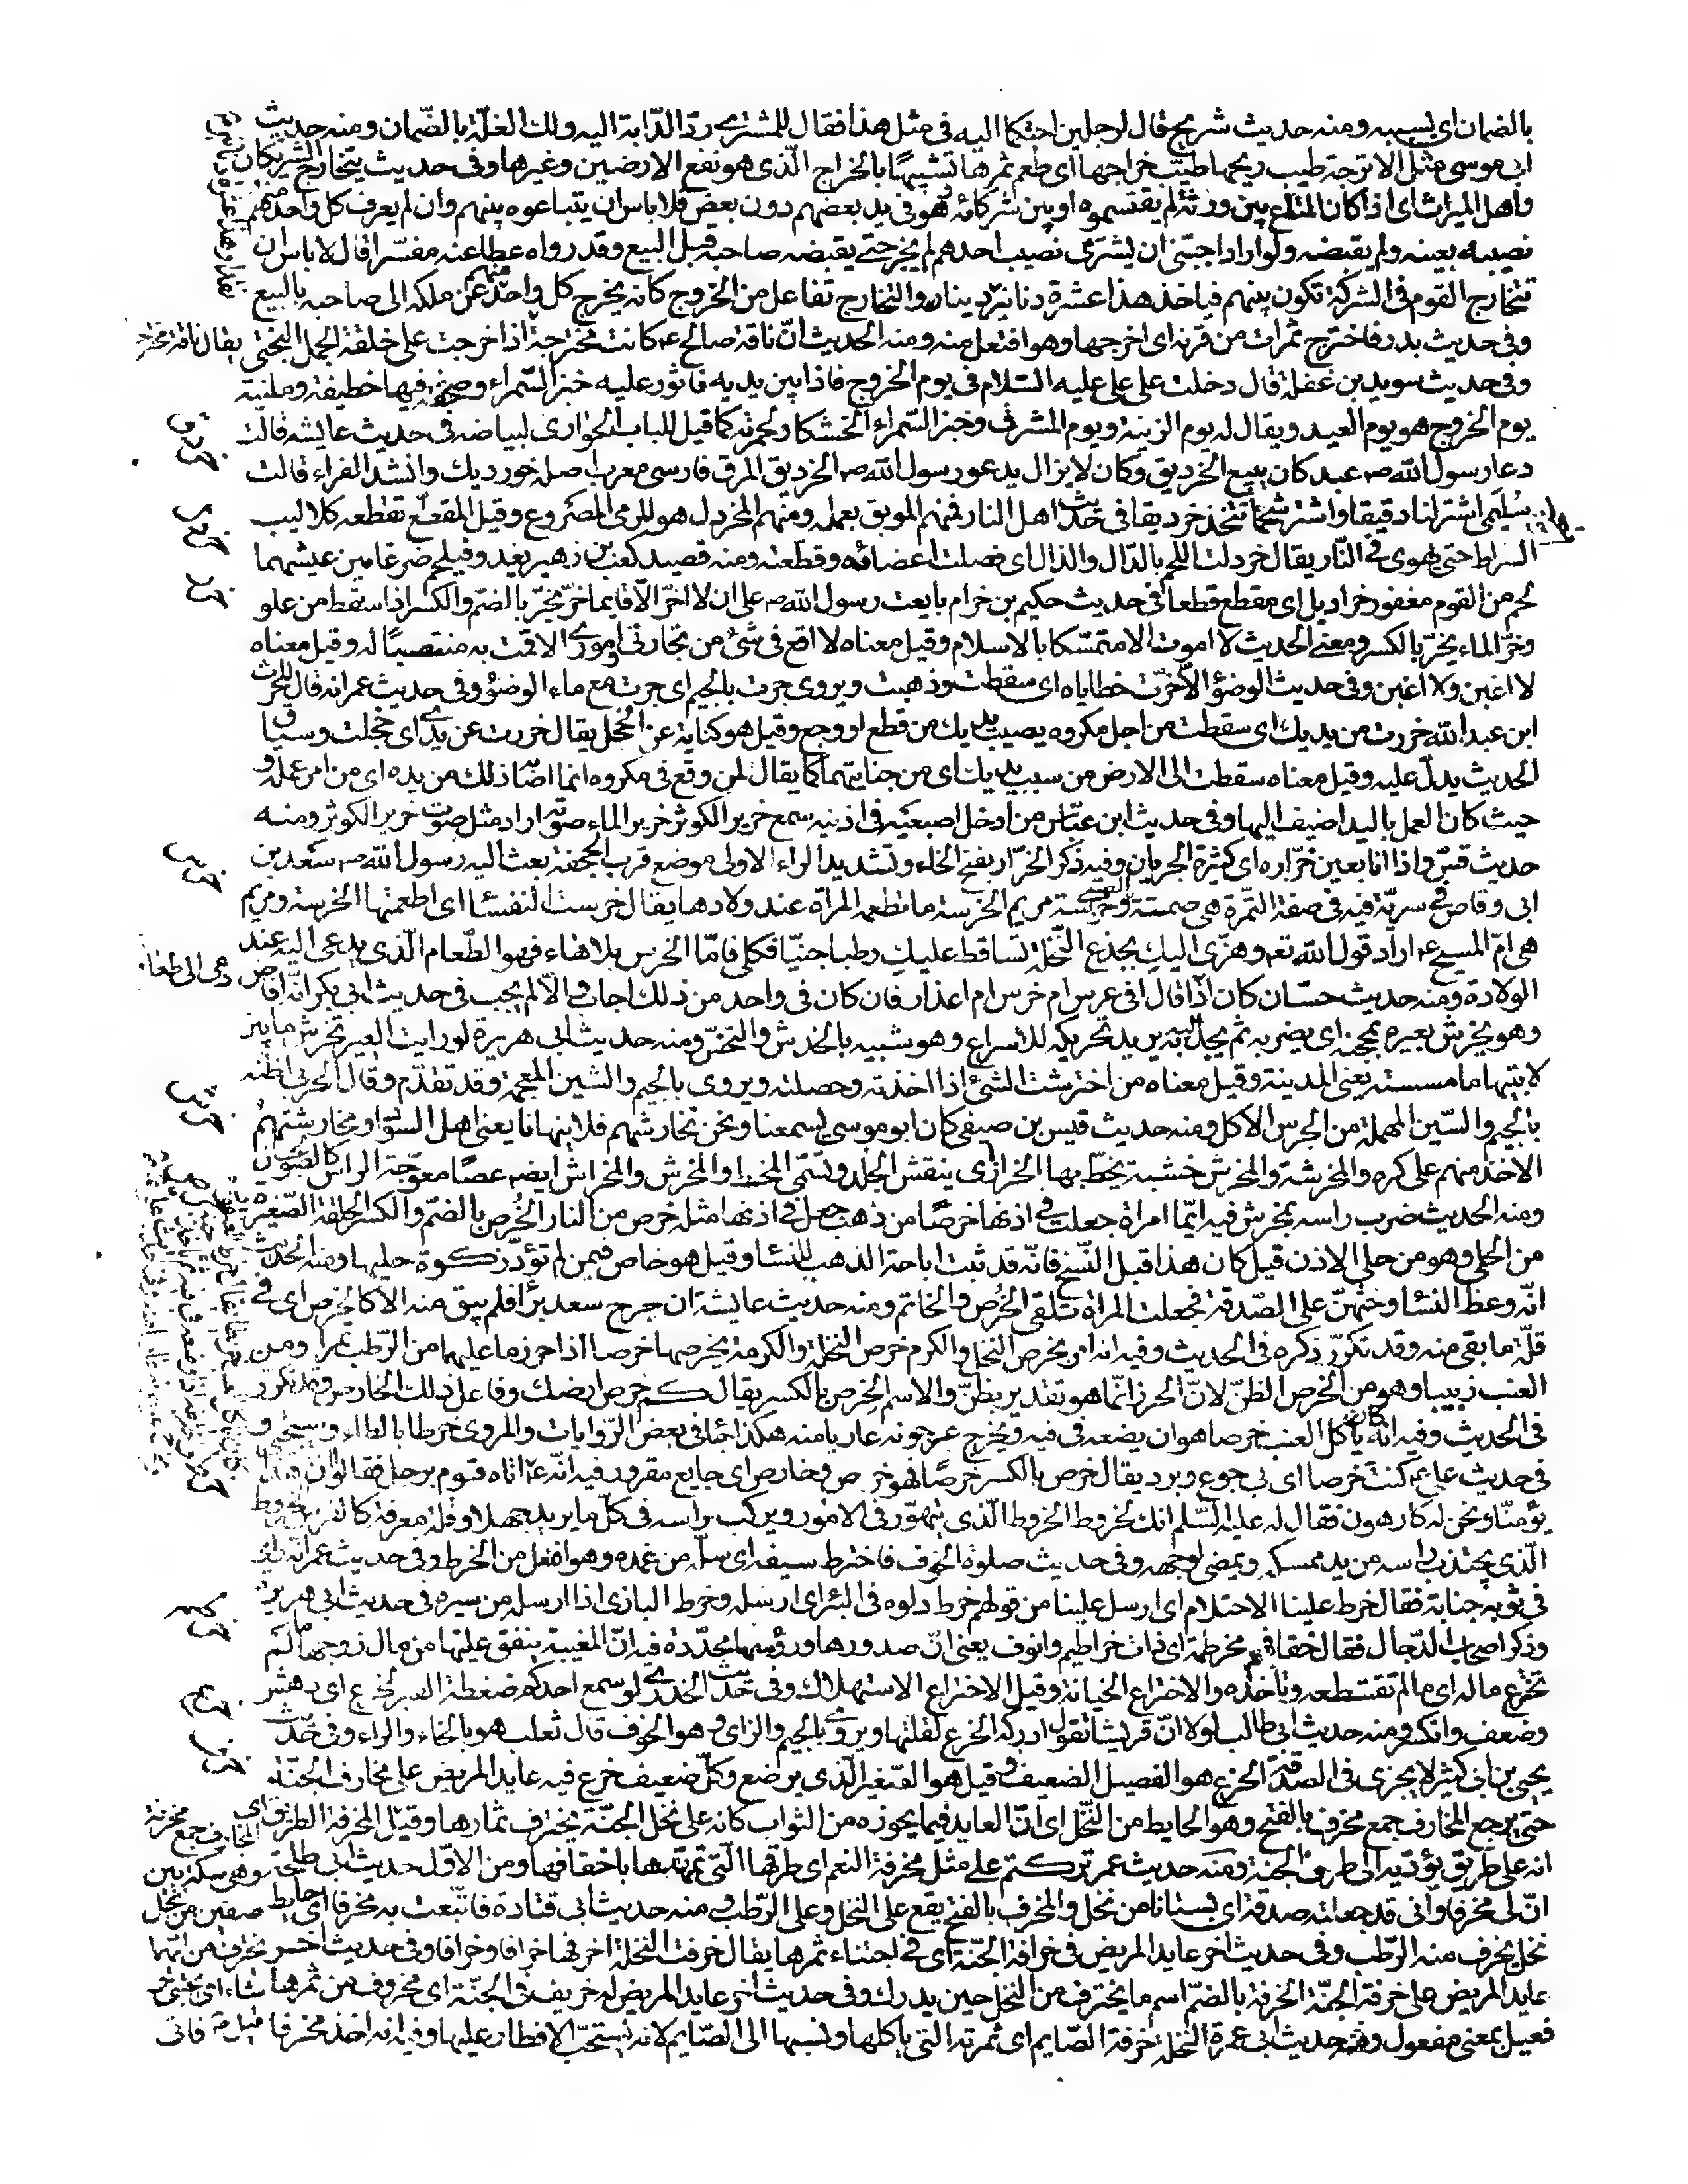 بالضمان اى بسببه ومنه حديث شريح قال لرجلين احتكما اليه فى مثل هذا فقال للمشترى ردّ الدّابة اليه ولك الغلّة بالضّمان ومنه حديث
ابى موسى مثل الاترجة طيب ريحها طيّب خراجها اى طعم ثمرها تشبيهًا بالخراج الّذى هو نفع الارضين وغيرها وفى حديث يتخارج الشريكان
واهل الميراث اى اذا كان المتاع بين ورثة لم يقتسموه او بين شركاء وهو فى يد بعضهم دون بعض فلا باس ان يتبايعوه بينهم وان لم يعرف كل واحد منهم
نصيبه بعينه ولم يقبضه ولو اراد اجنبّى ان يشترى نصيب احدهم لم يجز حتى يقبضه صاحبه قبل البيع وقد رواه عطا عنه مفسّرا قال لا باس ان
تتخارج القوم فى الشركة تكون بينهم فياخذ هذا عشرة دنانير دينا والتخارج تفاعل من الخروج كانه يخرج كل واحد منهم عن ملكه الى صاحبه بالبيع
وفى حديث بدر فاخترج تمرات من قرنه اى اخرجها وهو افتعل منه ومنه الحديث انّ ناقة صالح ع كانت مخترجة اذا خرجت على خلقة الجمل البختى يقال ناقة مخترجة
وفى حديث سويد بن غفلة قال دخلت على على عليه السّلام فى يوم الخروج فاذا بين يديه فاثور عليه خبز السّمراء وصحفة فيها خطيفة وملبنة
يوم الخروج هو يوم العيد ويقال له يوم الزينة ويوم المشرق وخبز السّمراء الخشكار لحمرته كما قيل للباب الحوارى لبياضه فى حديث عايشه قالت
دعا رسول الله ص عبد كان يبيع الخرديق وكان لا يزال يدعو رسول الله ص الخرديق المرق فارسى معرب اصله خورديك وانشد الفراء قالت
سُليمى اشتر لنا دقيقا واشتر شحما تتخذ خرديقا فى حديث اهل النار فمنهم الموبق بعمله ومنهم المخردل هو المرمى المصروع وقيل المقطّع تقطعه كلاليب
السراط حتى يهوى فى النّار يقال خردلت اللحم بالدّال والذال اى فصلت اعضائه وقطعته ومنه قصيد كعب بن زهير يغدو فيلحم ضرغامين عيشهما
لحم من القوم معفور خراديل اى مقطع قطعا فى حديث حكيم بن حزام بايعت رسول الله ص على ان لا اخرّ الّا قايما خرّ يخرّ بالضمّ والكسر اذا سقط من علو
وخرّ الماء يخرّ بالكسر ومعنى الحديث لا اموت الا متمسّكا بالاسلام وقيل معناه لا اقع فى شئ من تجارتى وامورى الا قمت به منتصبًا له وقيل معناه
لا اغبن ولا اغبن وفى حديث الوضؤ الّا خرّت خطاياه اى سقطت وذهبت ويروى جرت بالجيم اى جرت مع ماء الوضوُ وفى حديث عمر انه قال للحرث
ابن عبد الله خررت من يديك اى سقطت من اجل مكروه يصيب يديك من قطع او وجع وقيل هو كناية عن الخجل يقال خررت عن يدى اى خجلت وسياق
الحديث يدلّ عليه وقيل معناه سقطت الى الارض من سبب يديك اى من جنايتهما كما يقال لمن وقع فى مكروه انما اصابه ذلك من يده اى من امر عمله و
حيث كان العمل باليد اضيف اليها وفى حديث ابن عبّاس من ادخل اصبعيه فى اذنيه سمع خرير الكوثر خرير الماء صوته اراد مثل صوت خرير الكوثر ومنه
حديث قسّ واذا انا بعين خرّاره اى كثيرة الجريان وفيه ذكر الخرّار بفتح الخاء وتشديد الراء الاولى موضع قرب الجحفة بعث اليه رسول الله ص سعد بن
ابى وقاص فى سريّة فيه فى صفة التمرة هى صمتة الصبى وخرسة مريم الخرسة ما تطعمه المراة عند ولادها يقال خرست النفسا اى اطعمتها الخرسة ومريم
هى امّ المسيح ع اراد قول الله تع وهزّى اليك بجذع النّخلة تساقط عليك رطبا جنيّا فكلى فامّا الخرس بلا هاء فهو الطّعام الّذى يدعى اليه عند
الولادة ومنه حديث حسّان كان اذا دعى الى طعام قال افى عرس ام خرس ام اعذار فان كان فى واحد من ذلك اجاب والّا لم يجب فى حديث ابى بكر انّه افاض
وهو يخرش بعيره بمحجنه اى يضربه ثم يجذبه اليه يريد تحريكه للاسراع وهو شبيه بالخدش والنخس ومنه حديث ابى هريرة لو رايت العير تخرش ما بين
لابتيها ما مسسته يعنى المدينة وقيل معناه من اخترشت الشئ اذا اخذته وحصلته ويروى بالجيم والشين المعجمة وقد تقدّم وقال الحربى اظنه
بالجيم والسّين المهملة من الجرس الاكل ومنه حديث قيس بن صيفى كان ابو موسى يسمعنا ونحن نخارشهم فلا ينهانا يعنى اهل السّواد ومخارشتهم
الاخذ منهم على كره والمخرشة والمخرش خشبة يخطّ بها الخراز اى ينقش الجلد وتسّمى المخط والمخرش والمخراش ايضا عصًا معوّجة الراس كالصّولجان
ومنه الحديث ضرب راسه بمخرش فيه ايّما امراة جعلت فى اذنها خرصًا من ذهب جعل فى اذنها مثله خرص من النار الخُرص بالضمّ والكسر الحلقة الصّغيرة
من الحلى وهو من حلى الاذن قيل كان هذا قبل النّسخ فانّه قد ثبت اباحة الذهب للنسا وقيل هو خاص فيمن لم تؤدّ زكوة حليها ومنه الحديث
انّه وعظ النسا وحثّهنّ على الصّدقة فجعلت المراة تلقى الخُرص والخاتم ومنه حديث عايشة ان جرح سعد برأ فلم يبق منه الا كالخرص اى فى
قلّة ما بقى منه وقد تكرّر ذكره فى الحديث وفيه انه امر بخرص النخل والكرم خرص النخلة والكرمة يخرصها خرصا اذا حرز ما عليها من الرّطب تمرا ومن
العنب زبيبا وهو من الخرص الظنّ لانّ الحرز انّما هو تقدير بظنّ والاسم الخِرص بالكسر يقال كم خرص ارضك وفاعل ذلك الخارص وقد تكرّر
فى الحديث وفيه انّه كان ياكل العنب خرصا هو ان يضعه فى فيه ويُخرج عرجونه عاريا منه هكذا جا فى بعض الرّوايات والمروى خرطا بالطاء وسيجئ و
فى حديث على ع كنت خرصا اى بى جوع وبرد يقال خرص بالكسر خرصًا فهو خرص وخارص اى جايع مقرور فيه انّه ع اتاه قوم برجل فقالوا ان هذا
يؤمنّا ونحن له كارهون فقال له عليه السّلم انك لخروط الخروط الّذى يتهوّر فى الامور ويركب براسه فى كلّ ما يريد جهلا وقلة معرفة كالفرس الخروط
الّذى يجتذب راسه من يد ممسكه ويمضى لوجهه وفى حديث صلوة الخوف فاخترط سيفه اى سلّه من غمده وهو افتعل من الخرط وفى حديث عمر انّه راى
فى ثوبه جنابة فقال خرط علينا الاحتلام اى ارسل علينا من قولهم خرط دلوه فى البئر اى ارسله وخرط البازى اذا ارسله من سيره فى حديث ابى هريرة
وذكر اصحاب الدّجال فقال خفافهم مخرطمة اى ذات خراطيم وانوف يعنى انّ صدورها ورؤسها محدّدة فيه انّ المغيبة ينفق عليها من مال زوجها ما لم
تخترع ماله اى ما لم تقتطعه وتأخذه والاختراع الخيانة وقيل الاختراع الاستهلاك وفى حديث الخدرى لو سمع احدكم ضغطة القبر لخرع اى دهش
وضعف وانكسر ومنه حديث ابى طالب لولا انّ قريشا تقول ادركه الخرع لقلتها ويروى بالجيم والزاى وهو الخوف قال ثعلب هو بالخاء والراء وفى حديث
يحيى بن ابى كثير لا يجزى فى الصدقة الخرع هو الفصيل الضعيف وقيل هو الصّغير الّذى يرضع وكلّ ضعيف خرع فيه عايد المريض على مخارف الجنّة
حتى يرجع المخارف جمع مخرف بالفتح وهو الحايط من النّخل اى انّ العايد فيما يحوزه من الثواب كانه على نخل الجنّة يخترف ثمارها وقيل المخارف جمع مخرفة
وهى سكة بين صفين من نخل يخترف من ايهما شاء اى يجتنى وقيل المخرفة الطريق اى
انه على طريق يؤدّيه الى طريق الجنة ومنه حديث عمر تركتم على مثل مخرفة النعم اى طرقها الّتى تمهّدها باخفافها ومن الاوّل حديث ابى طلحة
انّ لى مخرفا وانى قد جعلته صدقة اى بستانا من نخل والمخرف بالفتح يقع على النخل وعلى الرّطب ومنه حديث ابى قتادة فابتعت به مخرفا اى حايط
نخل يخرف منه الرّطب وفى حديث اخر عايد المريض فى خرافة الجنّة اى فى اجتناء ثمرها يقال خرفت النخلة اخرفها خرفا وخرافا وفى حديث اخر
عايد المريض على خرفة الجنّة الخرفة بالضمّ اسم ما يخترف من النخل حين يدرك وفى حديث اخر عايد المريض له خريف فى الجنّة اى مخروف من ثمرها
فعيل بمعنى مفعول ومنه حديث ابى عمرة النخلة خرفة الصّايم اى ثمرته التى ياكلها ونسبها الى الصّايم لانه يستحبّ الافطار عليها وفيه انه اخذ مخرفا فاتى